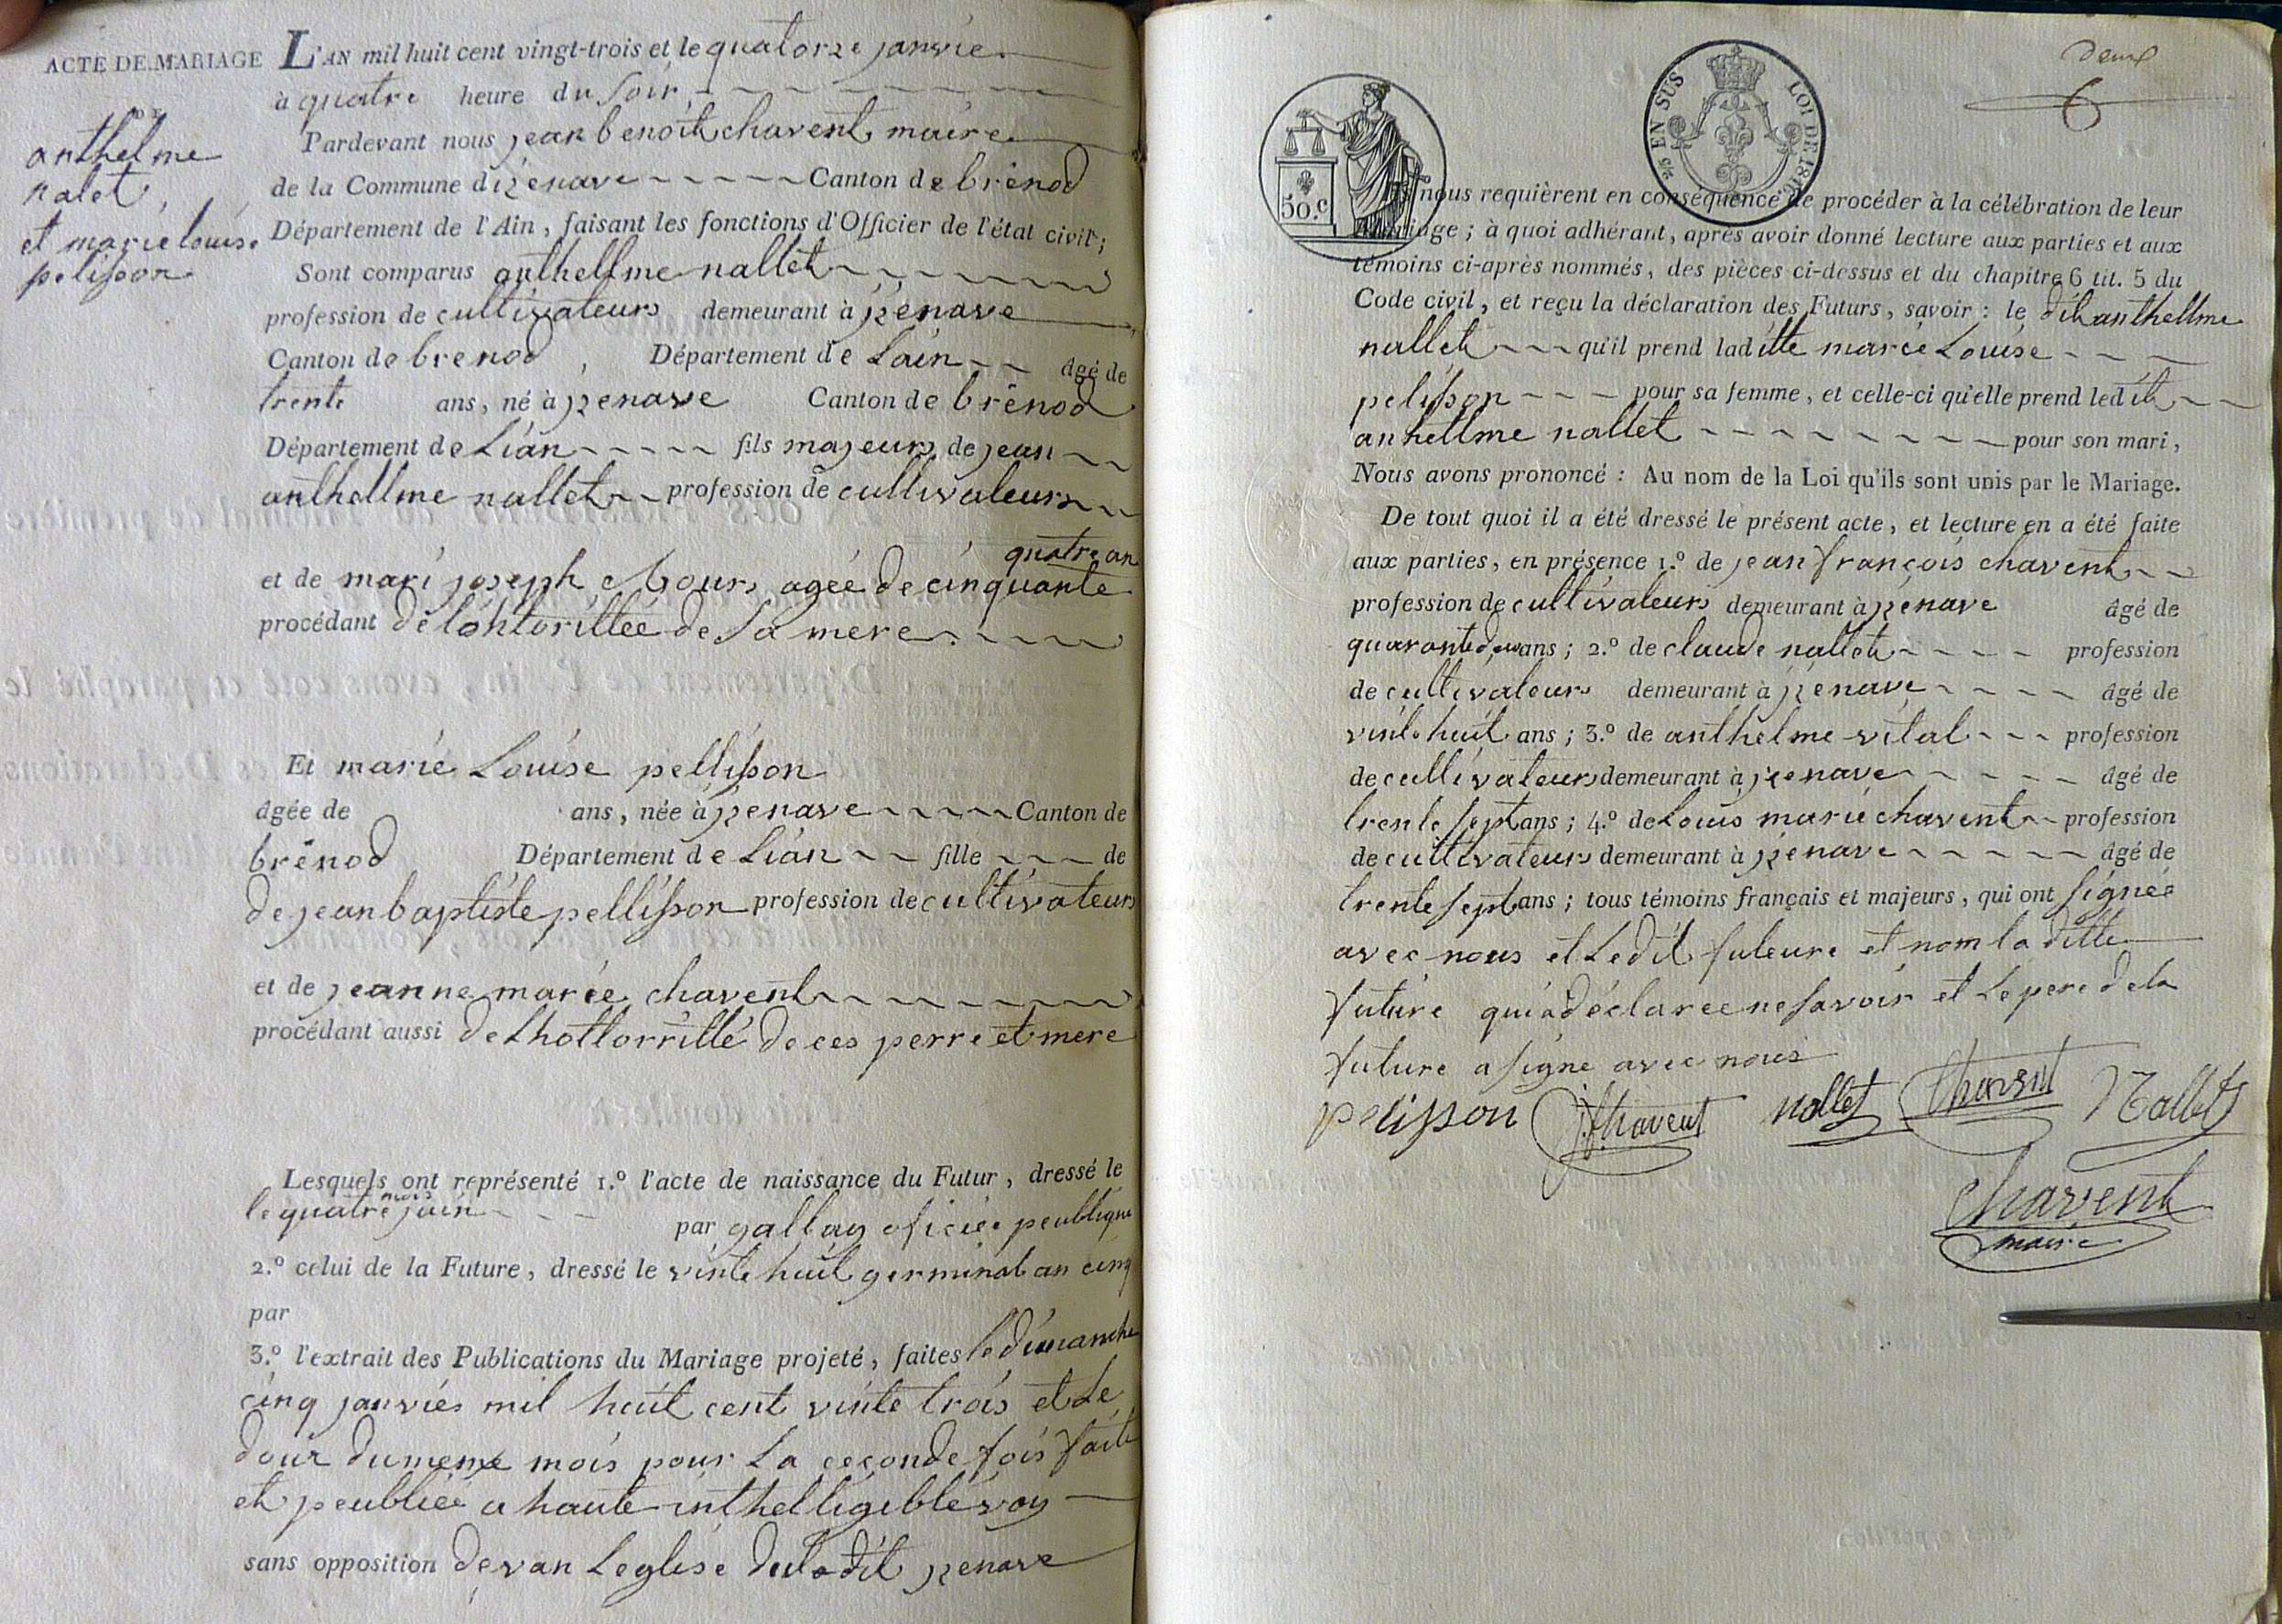 ACTE DE MARIAGE
anthelme
nalet
et marie louise
pelisson
L'AN mil huit cent vingt-trois et le quatorze janvie
à quatre heure du soir
Pardevant nous jean benoit chavent maire
de la Commune d izenave Canton de brénod
Département de l'Ain, faisant les fonctions d'Officier de l'état civil;
Sont comparus anthellme nallet
profession de cultivateurs demeurant à izenave
Canton de brenod, Département de Lain âgé de
trente ans, né à izenave Canton de brénod
Département de Lian fils majeurs de jean
anthellme nallet profession de cultivateurs
quatre an
et de mari joseph agée de cinquante
procédant de lohtorittée de sa mere
Et marie Louise pellisson
âgée de ans, née à izenave Canton de
brénod Département de Lian fille de
de jean baptiste pellisson profession de cultivateurs
et de jeanne marie chavent
procédant aussi de Lhottorritté de ces perre et mere
Lesquels ont représenté 1.º l'acte de naissance du Futur, dressé le
le quatre juin par gallay oficiée peublique
2.º celui de la Future, dressé le vinte huit germinal an cinq
par
3.º l'extrait des Publications du Mariage projeté, faites le dimanche
cinq janvies mil huit cent vinte trois et Le
douz du meme mois pour La ceconde fois faite
et peubliée a haute inthelligible voy
sans opposition devan Leglise dudit izenave
deux
6
50.c
EN SUS LOI DE 1816.
nous requièrent en conséquence de procéder à la célébration de leur
mariage; à quoi adhérant, après avoir donné lecture aux parties et aux
témoins ci-après nommés, des pièces ci-dessus et du chapitre 6 tit. 5 du
Code civil, et reçu la déclaration des Futurs, savoir: le dit anthellme
nallet qu'il prend laditte marie Louise
pelisson pour sa femme, et celle-ci qu'elle prend ledit
anhellme nallet pour son mari,
Nous avons prononcé: Au nom de la Loi qu'ils sont unis par le Mariage.
De tout quoi il a été dressé le présent acte, et lecture en a été faite
aux parties, en présence 1.º de jean françois chavent
profession de cultivateurs demeurant à izenave âgé de
quarante deux ans; 2.º de claude nallet profession
de cultivateurs demeurant à izenave âgé de
vinte huit ans; 3.º de anthelme vital profession
de cultivateurs demeurant à izenave âgé de
trente sept ans; 4.º de Louis marie chavent profession
de cultivateurs demeurant à izenave âgé de
trente sept ans; tous témoins français et majeurs, qui ont signée
avec nous et Ledit futeure et nom la ditte
future qui a déclaree ne savoir et Le pere de la
future a signe avec nous
pelisson J.f. Chavent nallet Chavent Nallet
Chavent
maire